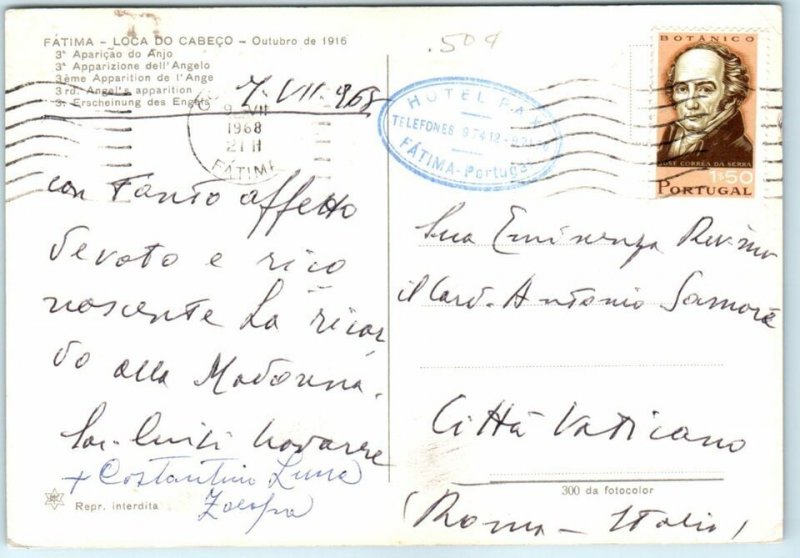 FÁTIMA - LOCA DO CABEÇO - Outubro de 1916
3ª Aparição do Anjo
3ª Apparizione dell'Angelo
3ème Apparition de l'Ange
3rd. Angel's apparition
3. Erscheinung des Engels
7. VII. 968
9 VII
1968
21 H
FÁTIMA
.509
HOTEL PAX
TELEFONES 97412
FÁTIMA - Portugal
BOTÂNICO
JOSÉ CORRÊA DA SERRA
1$50
PORTUGAL
con tanto affetto
devoto e rico
noscente La ricor
do alla Madonna.
Luigi
+ Costantino Luna
Sua Eminenza Rev.ma
il Card. Antonio Samorè
Città Vaticano
(Roma - Italia)
Repr. interdita
300 da fotocolor